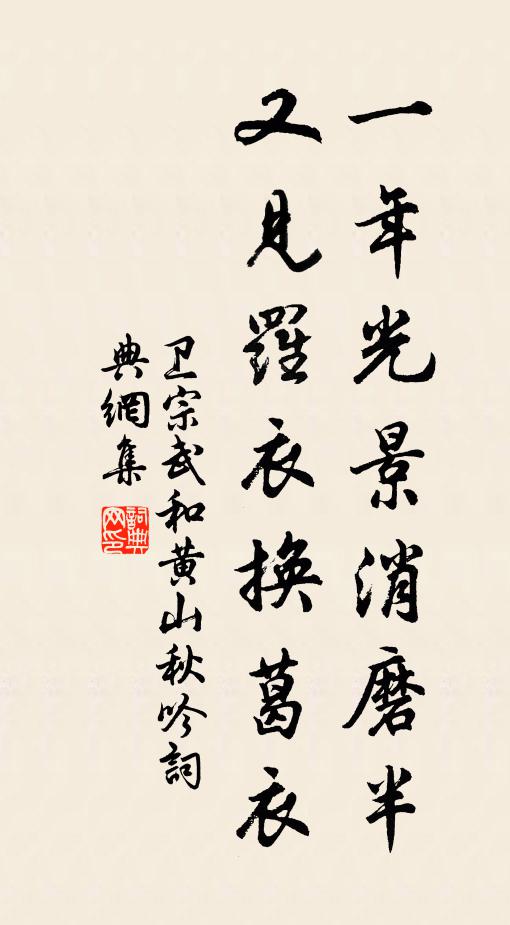 一年光景消磨半
又見羅衣換葛衣
卫宗武和黄山秋吟詞
典網集
詞典网印